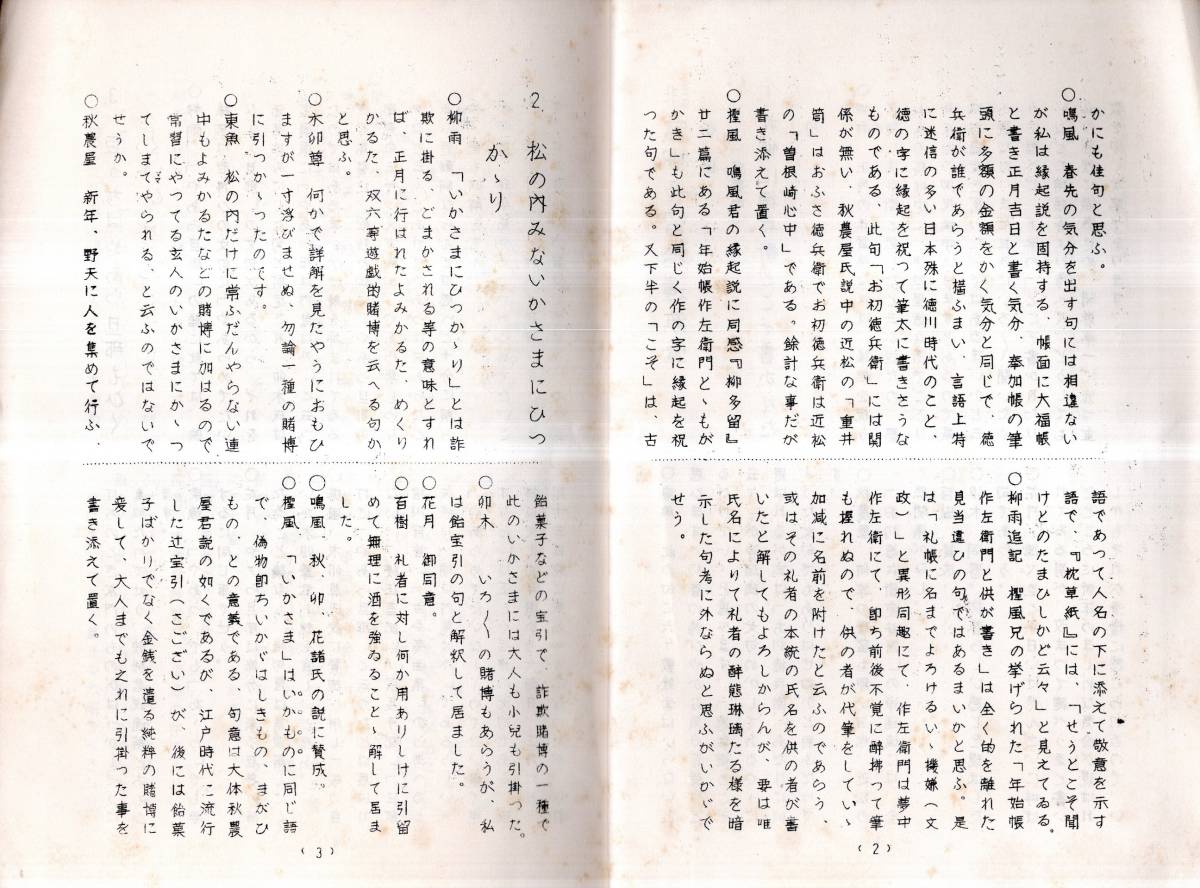 かにも佳句と思ふ。
○鳴風　春先の気分を出す句には相違ない
が私は縁起説を固持する、帳面に大福帳
と書き正月吉日と書く気分、奉加帳の筆
頭に多額の金額をかく気分と同じで、徳
兵衛が誰であらうと構ふまい、言語上特
に迷信の多い日本殊に徳川時代のこと、
徳の字に縁起を祝って筆太に書きさうな
ものである、此句「お初徳兵衛」には関
係が無い、秋農屋氏説中の近松の「重井
筒」はおふさ徳兵衛でお初徳兵衛は近松
の「曽根崎心中」である。餘計な事だが
書き添えて置く。
○樫風　鳴風君の縁起説に同感『柳多留』
廿二篇にある「年始帳作左衛門とゝもが
かき」も此句と同じく作の字に縁起を祝
った句である。又下半の「こそ」は、古
語であって人名の下に添えて敬意を示す
語で、『枕草紙』には、「せうとこそ聞
けとのたまひしかど云々」と見えてゐる。
○柳雨追記　樫風兄の挙げられた「年始帳
作左衛門と供が書き」は全く的を離れた
見当違ひの句ではあるまいかと思ふ。是
は「礼帳に名までよろけるいゝ機嫌（文
政）」と異形同趣にて、作左衛門は夢中
作左衛にて、卽ち前後不覚に酔拂って筆
も握れぬので、供の者が代筆をしていゝ
加減に名前を附けたと云ふのであらう、
或はその礼者の本統の氏名を供の者が書
いたと解してもよろしからんが、要は唯
氏名によりて礼者の酔態琳璃たる様を暗
示した句考に外ならぬと思ふがいかゞで
せう。
（2）
2　松の内みないかさまにひつ
かゝり
○柳雨　「いかさまにひつかゝり」とは詐
欺に掛る、ごまかされる等の意味とすれ
ば、正月に行はれたよみかるた、めくり
かるた、双六等遊戯的賭博を云へる句か
と思ふ。
○木卯尊　何かで詳解を見たやうにおもひ
ますが一寸浮びませぬ、勿論一種の賭博
に引つかゝつたのです。
○東魚　松の内だけに常ふだんやらない連
中もよみかるたなどの賭博に加はるので
常習にやつてる玄人のいかさまにかゝつ
てしまてやられる、と云ふのではないで
せうか。
○秋農屋　新年、野天に人を集めて行ふ、
飴菓子などの宝引で、詐欺賭博の一種で
此のいかさまには大人も小兒も引掛つた。
○卯木　いろ〱の賭博もあらうが、私
は飴宝引の句と解釈して居ました。
○花月　御同意。
○百樹　礼者に対し何か用ありしげに引留
めて無理に酒を強ゐることゝ解して居ま
した。
○鳴風、秋、卯、花諸氏の説に賛成。
○樫風、「いかさま」はいかものに同じ語
で、偽物卽ちいかゞはしきもの、まがひ
もの、との意義である、句意は大体秋農
屋君説の如くであるが、江戸時代に流行
した辻宝引（さござい）が、後には飴菓
子ばかりでなく金銭を遣る純粋の賭博に
変して、大人までも之れに引掛った事を
書き添えて置く。
（3）